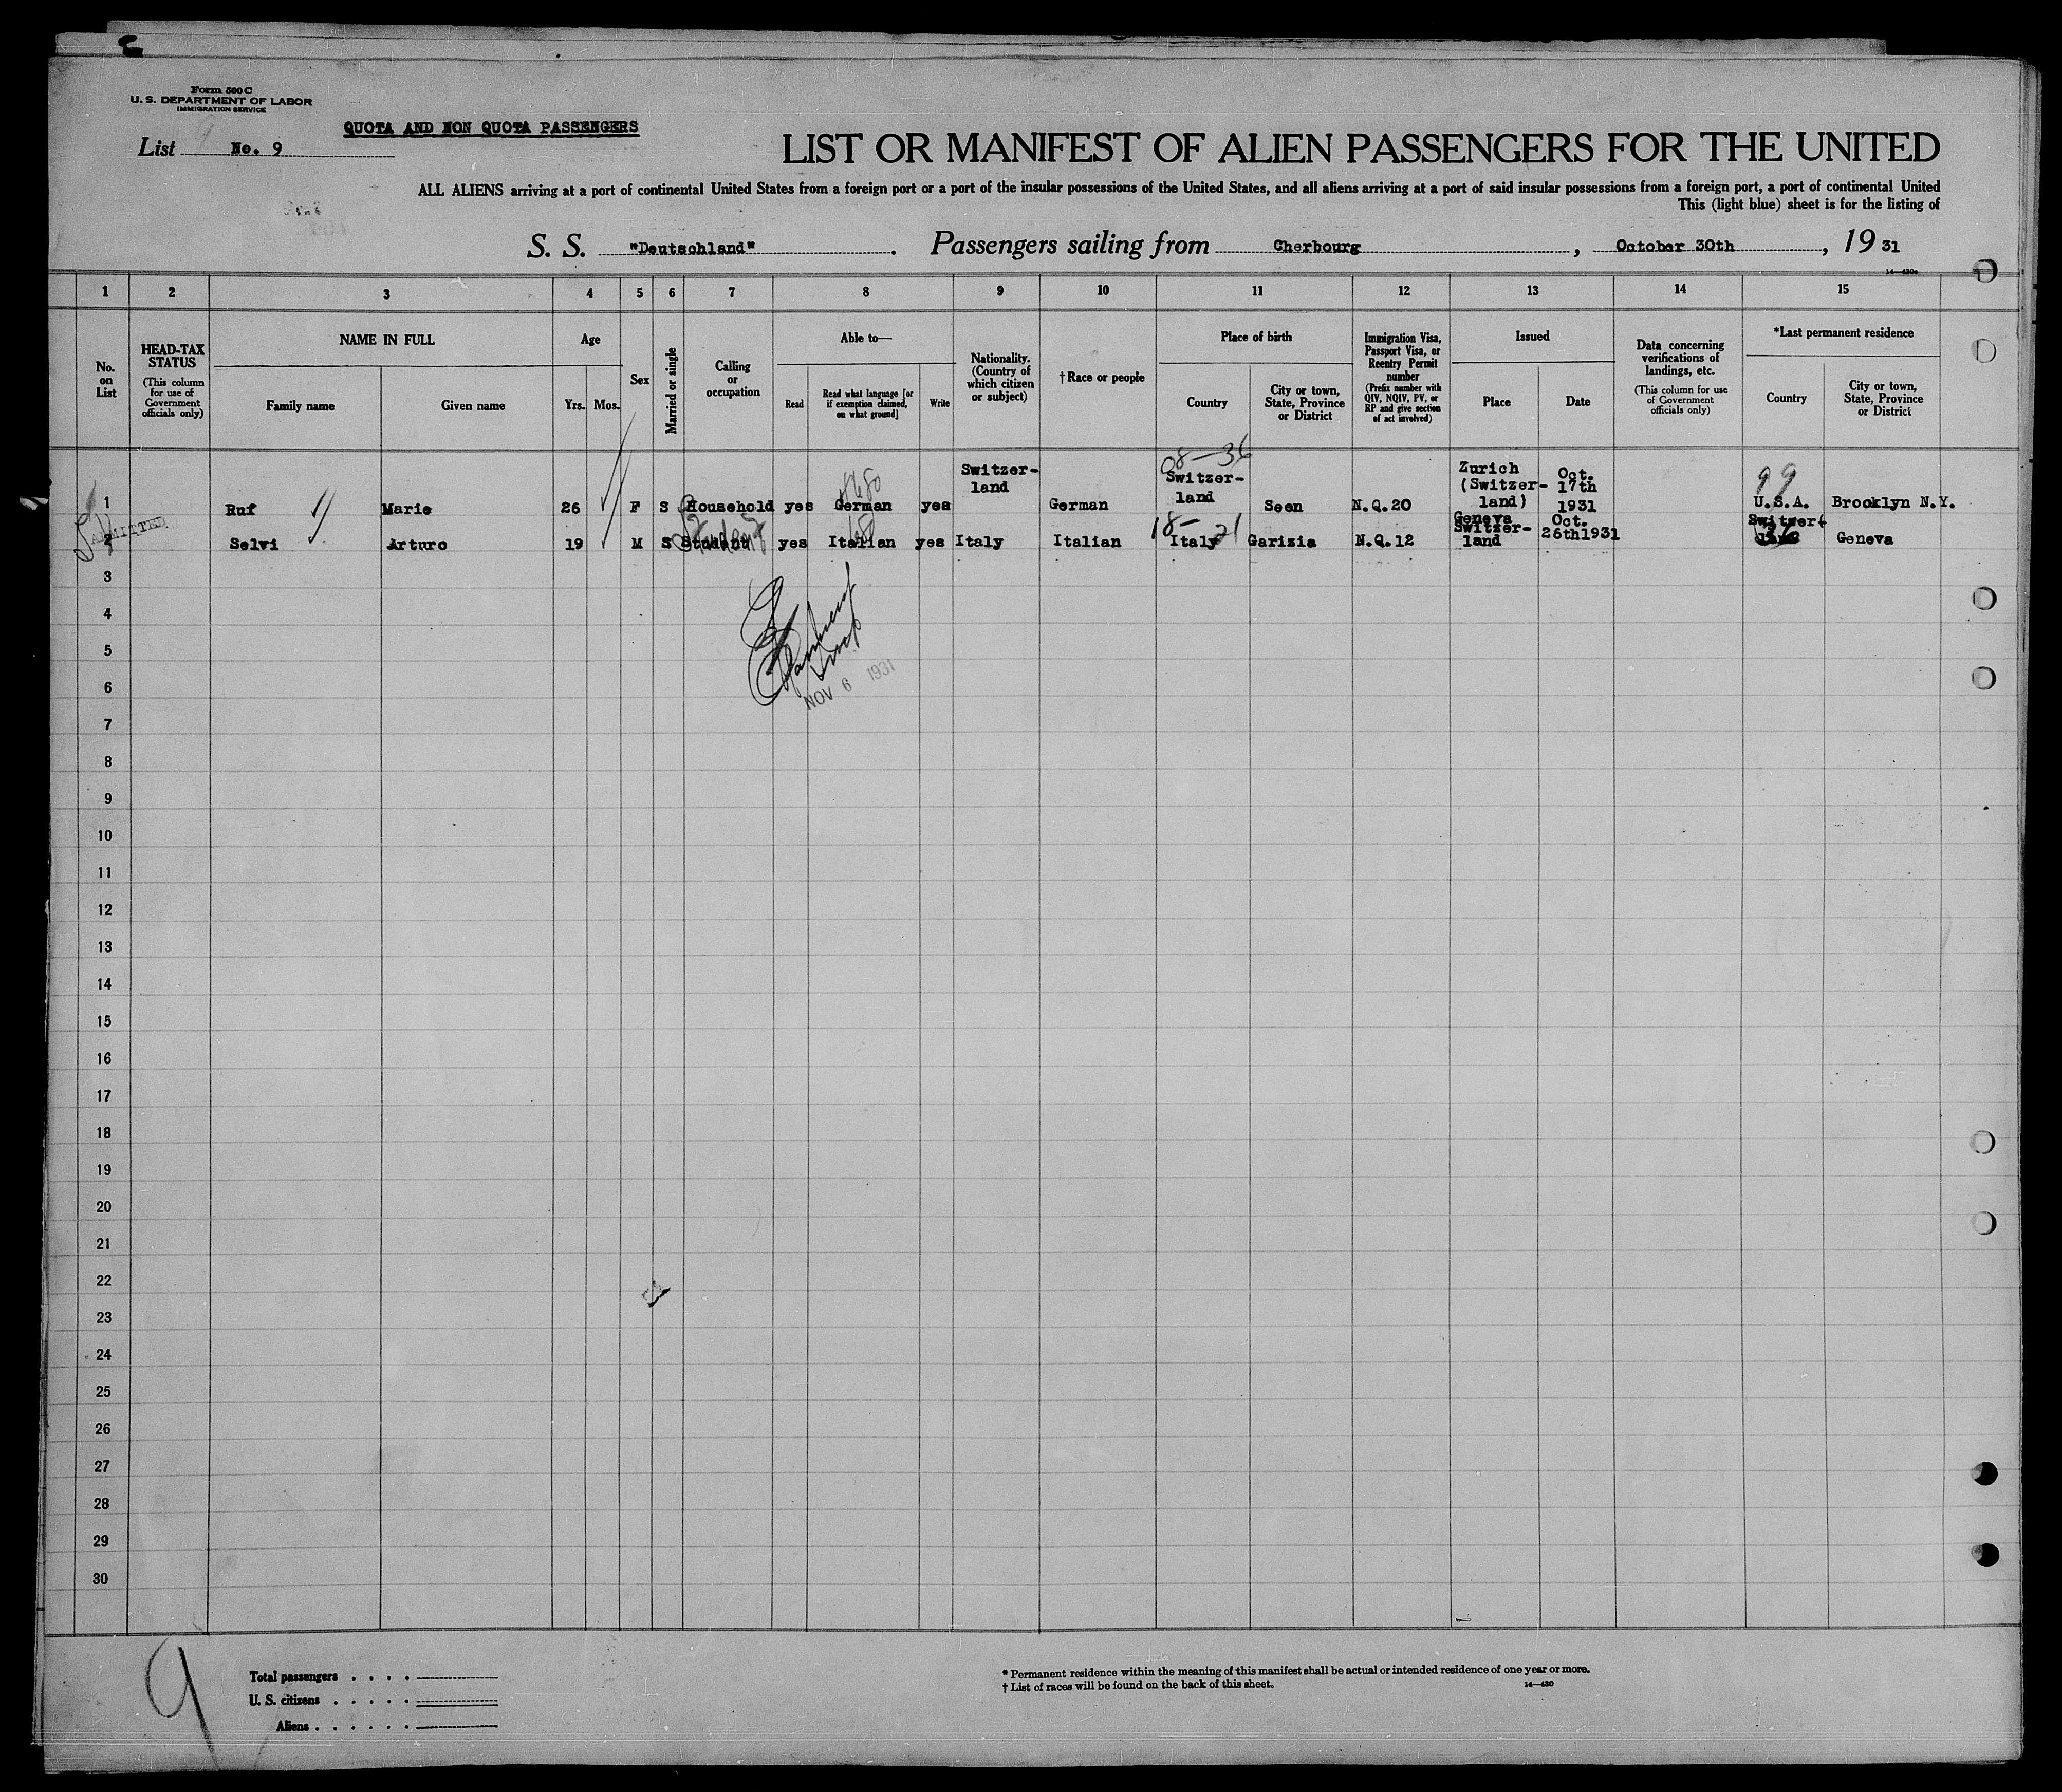 Form 500 C
U. S. DEPARTMENT OF LABOR
IMMIGRATION SERVICE
QUOTA AND NON QUOTA PASSENGERS
List No. 9
LIST OR MANIFEST OF ALIEN PASSENGERS FOR THE UNITED
ALL ALIENS arriving at a port of continental United States from a foreign port or a port of the insular possessions of the United States, and all aliens arriving at a port of said insular possessions from a foreign port, a port of continental United
This (light blue) sheet is for the listing of
S. S. "Deutschland". Passengers sailing from Cherbourg, October 30th, 19 31
1 2 3 4 5 6 7 8 9 10 11 12 13 14 15
No. on List
HEAD-TAX STATUS
(This column for use of Government officials only)
NAME IN FULL
Family name
Given name
Age
Yrs.
Mos.
Sex
Married or single
Calling or occupation
Able to—
Read
Read what language [or if exemption claimed, on what ground]
Write
Nationality. (Country of which citizen or subject)
†Race or people
Place of birth
Country
City or town, State, Province or District
Immigration Visa, Passport Visa, or Reentry Permit number
(Prefix number with QIV, NQIV, PV, or RP and give section of act involved)
Issued
Place
Date
Data concerning verifications of landings, etc.
(This column for use of Government officials only)
*Last permanent residence
Country
City or town, State, Province or District
08—36
99
1 Ruf Marie 26 F S Household yes German yes Switzer-land German Switzer-land Seen N.Q.20 Zurich (Switzer-land) Oct. 17th 1931 U.S.A. Brooklyn N.Y.
ADMITTED
18— 21
2 Selvi Arturo 19 M S Student yes Italian yes Italy Italian Italy Garizia N.Q.12 Geneva Switzer-land Oct. 26th1931 Switzer- Geneva
3
4
5
6
NOV 6 1931
7
8
9
10
11
12
13
14
15
16
17
18
19
20
21
22
23
24
25
26
27
28
29
30
9
Total passengers . . . .
U. S. citizens . . . . .
Aliens . . . . . .
* Permanent residence within the meaning of this manifest shall be actual or intended residence of one year or more.
† List of races will be found on the back of this sheet.
14—430